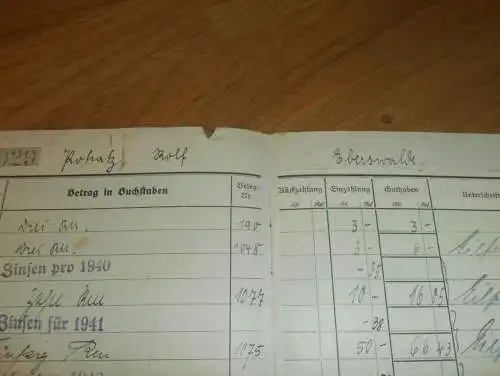 129 Rolf Eberswalde
Betrag in Buchstaben Beleg-Nr. Rückzahlung Einzahlung Guthaben Unterschrift
drei RM. 190 3 - 3 -
drei RM. 1048 3 - 6 -
Zinsen pro 1940 - 35
Zehn RM 1077 10 - 16 35
Zinsen für 1941 - 38
fünfzig RM 1075 50 - 66 43